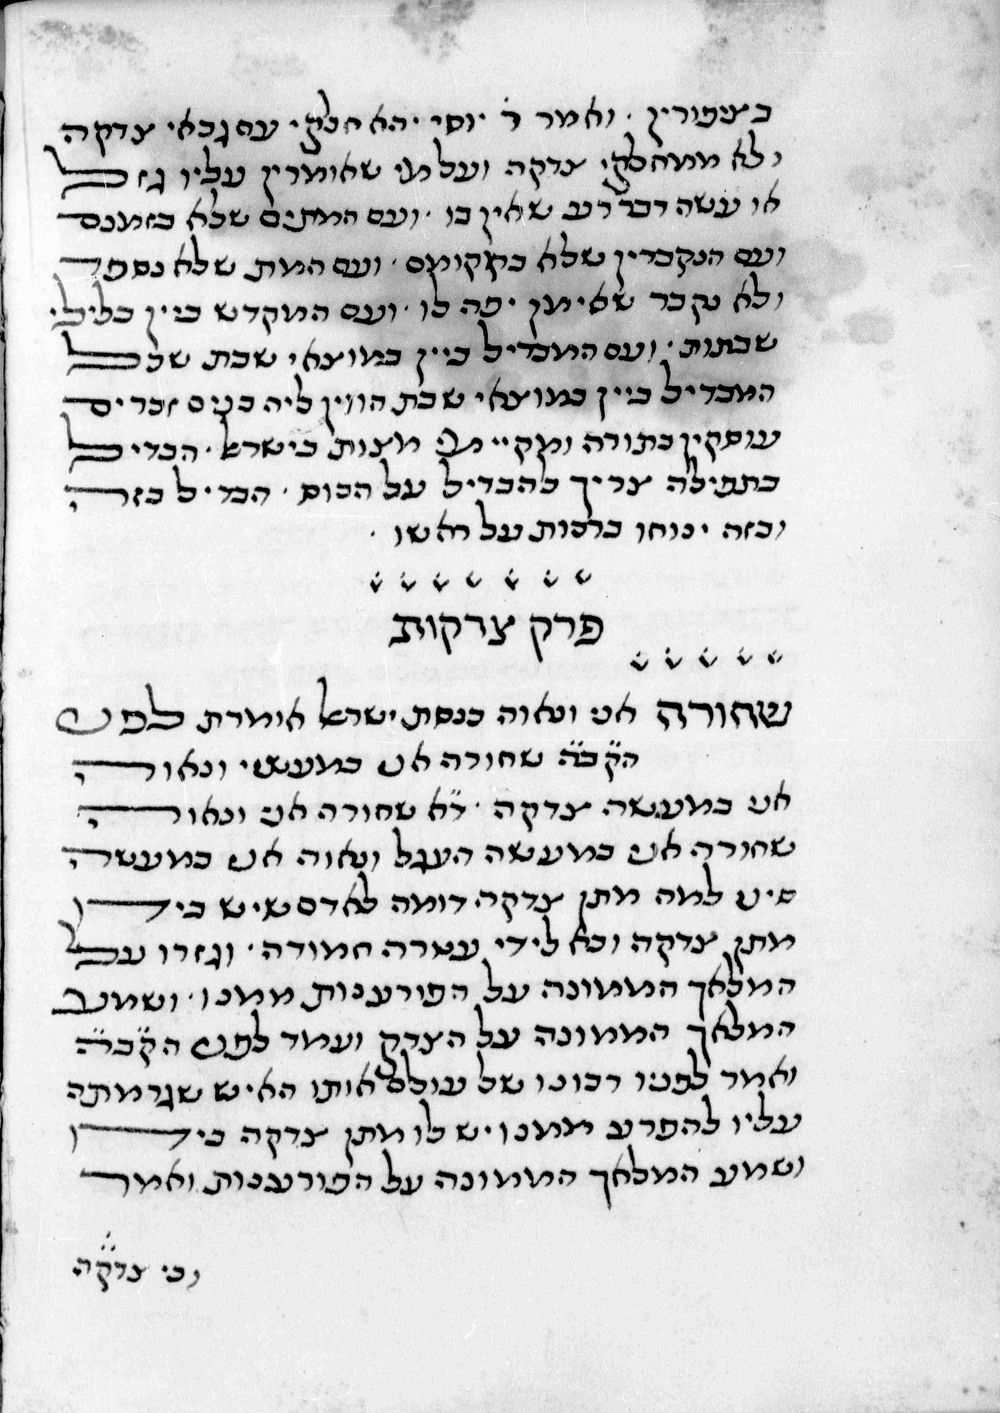 בציפורין · ואמר ר׳ יוסי יהא חלקי עם גבאי צדקה
ולא ממחלקי צדקה ועל מי שאומרין עליו גזל
או עשה דבר רע שאין בו · ועם המתים שלא בזמנם
ועם הנקברין שלא במקומם · ועם המת שלא נספד
ולא נקבר שאימן יפה לו · ועם המקדש ביין בלילי
שבתות · ועם המבדיל ביין במוצאי שבת שכל
המבדיל ביין במוצאי שבת הווין ליה בנים זכרים
עוסקין בתורה ומקיימי מצות בישראל · הבדיל
בתפילה צריך להבדיל על הכוס · הבדיל בזה
ובזה ינוחו ברכות על ראשו ·
פרק צדקות
שחורה אני ונאוה כנסת ישראל אומרת לפני
הק״בה שחורה אני במעשי ונאוה
אני במעשה צדקה · ד״א שחורה אני ונאוה
שחורה אני במעשה העגל ונאוה אני במעשה
סיני למה מתן צדקה דומה לאדם שיש בידו
מתן צדקה ובא לידי עטרה חמודה · וגזרו על
המלאך הממונה על הפורענות ממנו · ושמע
המלאך הממונה על הצדק ועמד לפני הק״בה
ואמר לפניו רבונו של עולם אותו האיש שגרמתה
עליו להפרע ממנו יש לו מתן צדקה בידו
ושמע המלאך הממונה על הפורענות ואמר
וכי צדקה